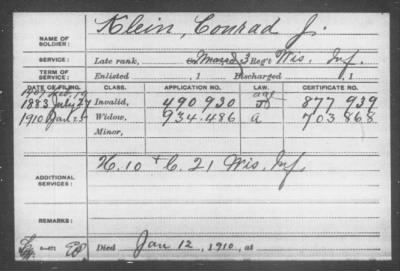 NAME OF SOLDIER: Klein, Conrad J.
SERVICE: Late rank, 3 Reg't Wis. Inf.
TERM OF SERVICE: Enlisted , 1 Discharged , 1
DATE OF FILING. CLASS. APPLICATION NO. LAW. CERTIFICATE NO.
1907 Feb. 19 age
1883 July 27 Invalid, 490930 877939
1910 Jan. 25 Widow, 934.486 a 703868
Minor,
ADDITIONAL SERVICES: H. 10 + C. 21 Wis. Inf.
REMARKS:
Died Jan 12, 1910, at